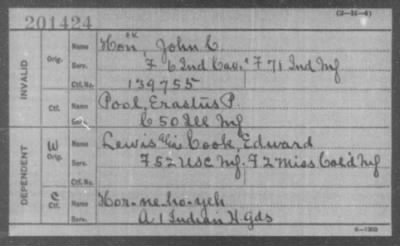 (3-31-4)
201424
INVALID
Orig.
Name Hon, OK John C.
Serv. F 6 Ind Cav., F 71 Ind Inf
Ctf. No. 139755
Ctf.
Name Pool, Erastus P.
Serv. C 50 Ill Inf
DEPENDENT
W Orig.
Name Lewis alias Cook, Edward
Serv. F 52 USC Inf. F 2 Miss Col'd Inf
Ctf. No.
C Ctf.
Name Hor-ne-ho-yeh
Serv. A 1 Indian H. Gds
6-1209